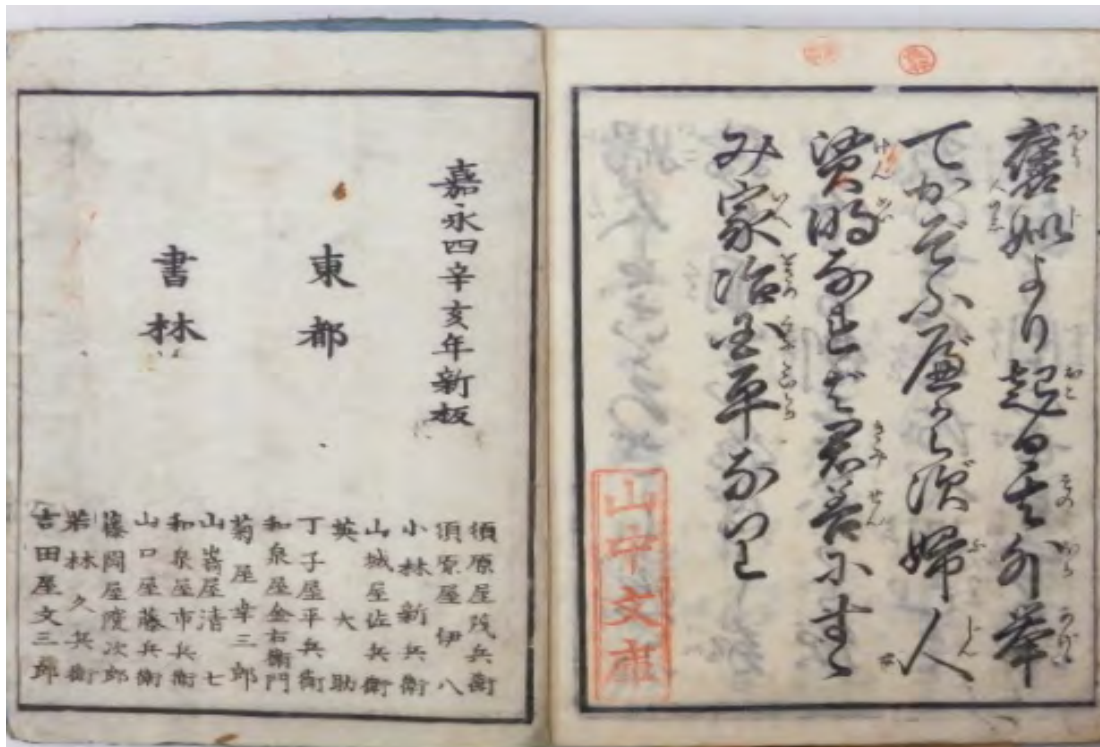 褒姒より起る其外挙
てかぞふべからず婦人
賢明なれば君善にすゝ
み家治国平なりと
山中文庫
嘉永四辛亥年新板
東都
書林
須原屋茂兵衛
須原屋伊八
小林新兵衛
山城屋佐兵衛
英大助
丁子屋平兵衛
和泉屋金右衛門
菊屋幸三郎
山嵜屋清七
和泉屋市兵衛
山口屋藤兵衛
藤岡屋慶次郎
若林久兵衛
吉田屋文三郎